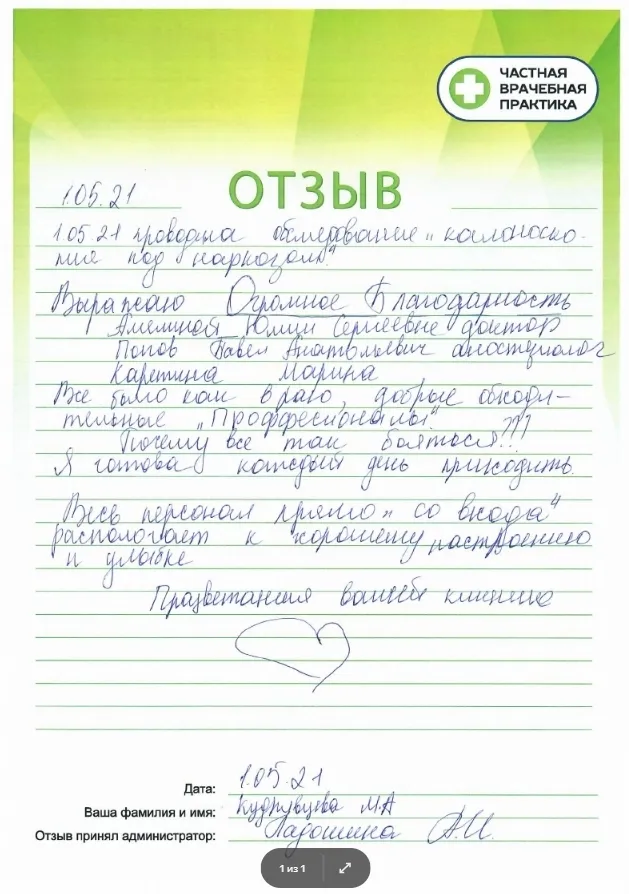 ЧАСТНАЯ
ВРАЧЕБНАЯ
ПРАКТИКА
ОТЗЫВ
1.05.21
1.05.21 проводила обследование „колоноско-
пия под наркозом".
Выражаю Огромное Благодарность
Юлии Сергеевне доктор
Попов Павел Анатольевич
Каретина Марина
Все было как в раю, добрые обходи-
тельные „Проффесионалы".
Почему все так боятся???
Я готова каждый день приходить.
Весь персонал прямо „со входа"
распологает к хорошему настроению
и улыбке
Процветания вашей клинике
Дата: 1.05.21
Ваша фамилия и имя: М.А
Отзыв принял администратор: Ладошина А.И.
1 из 1